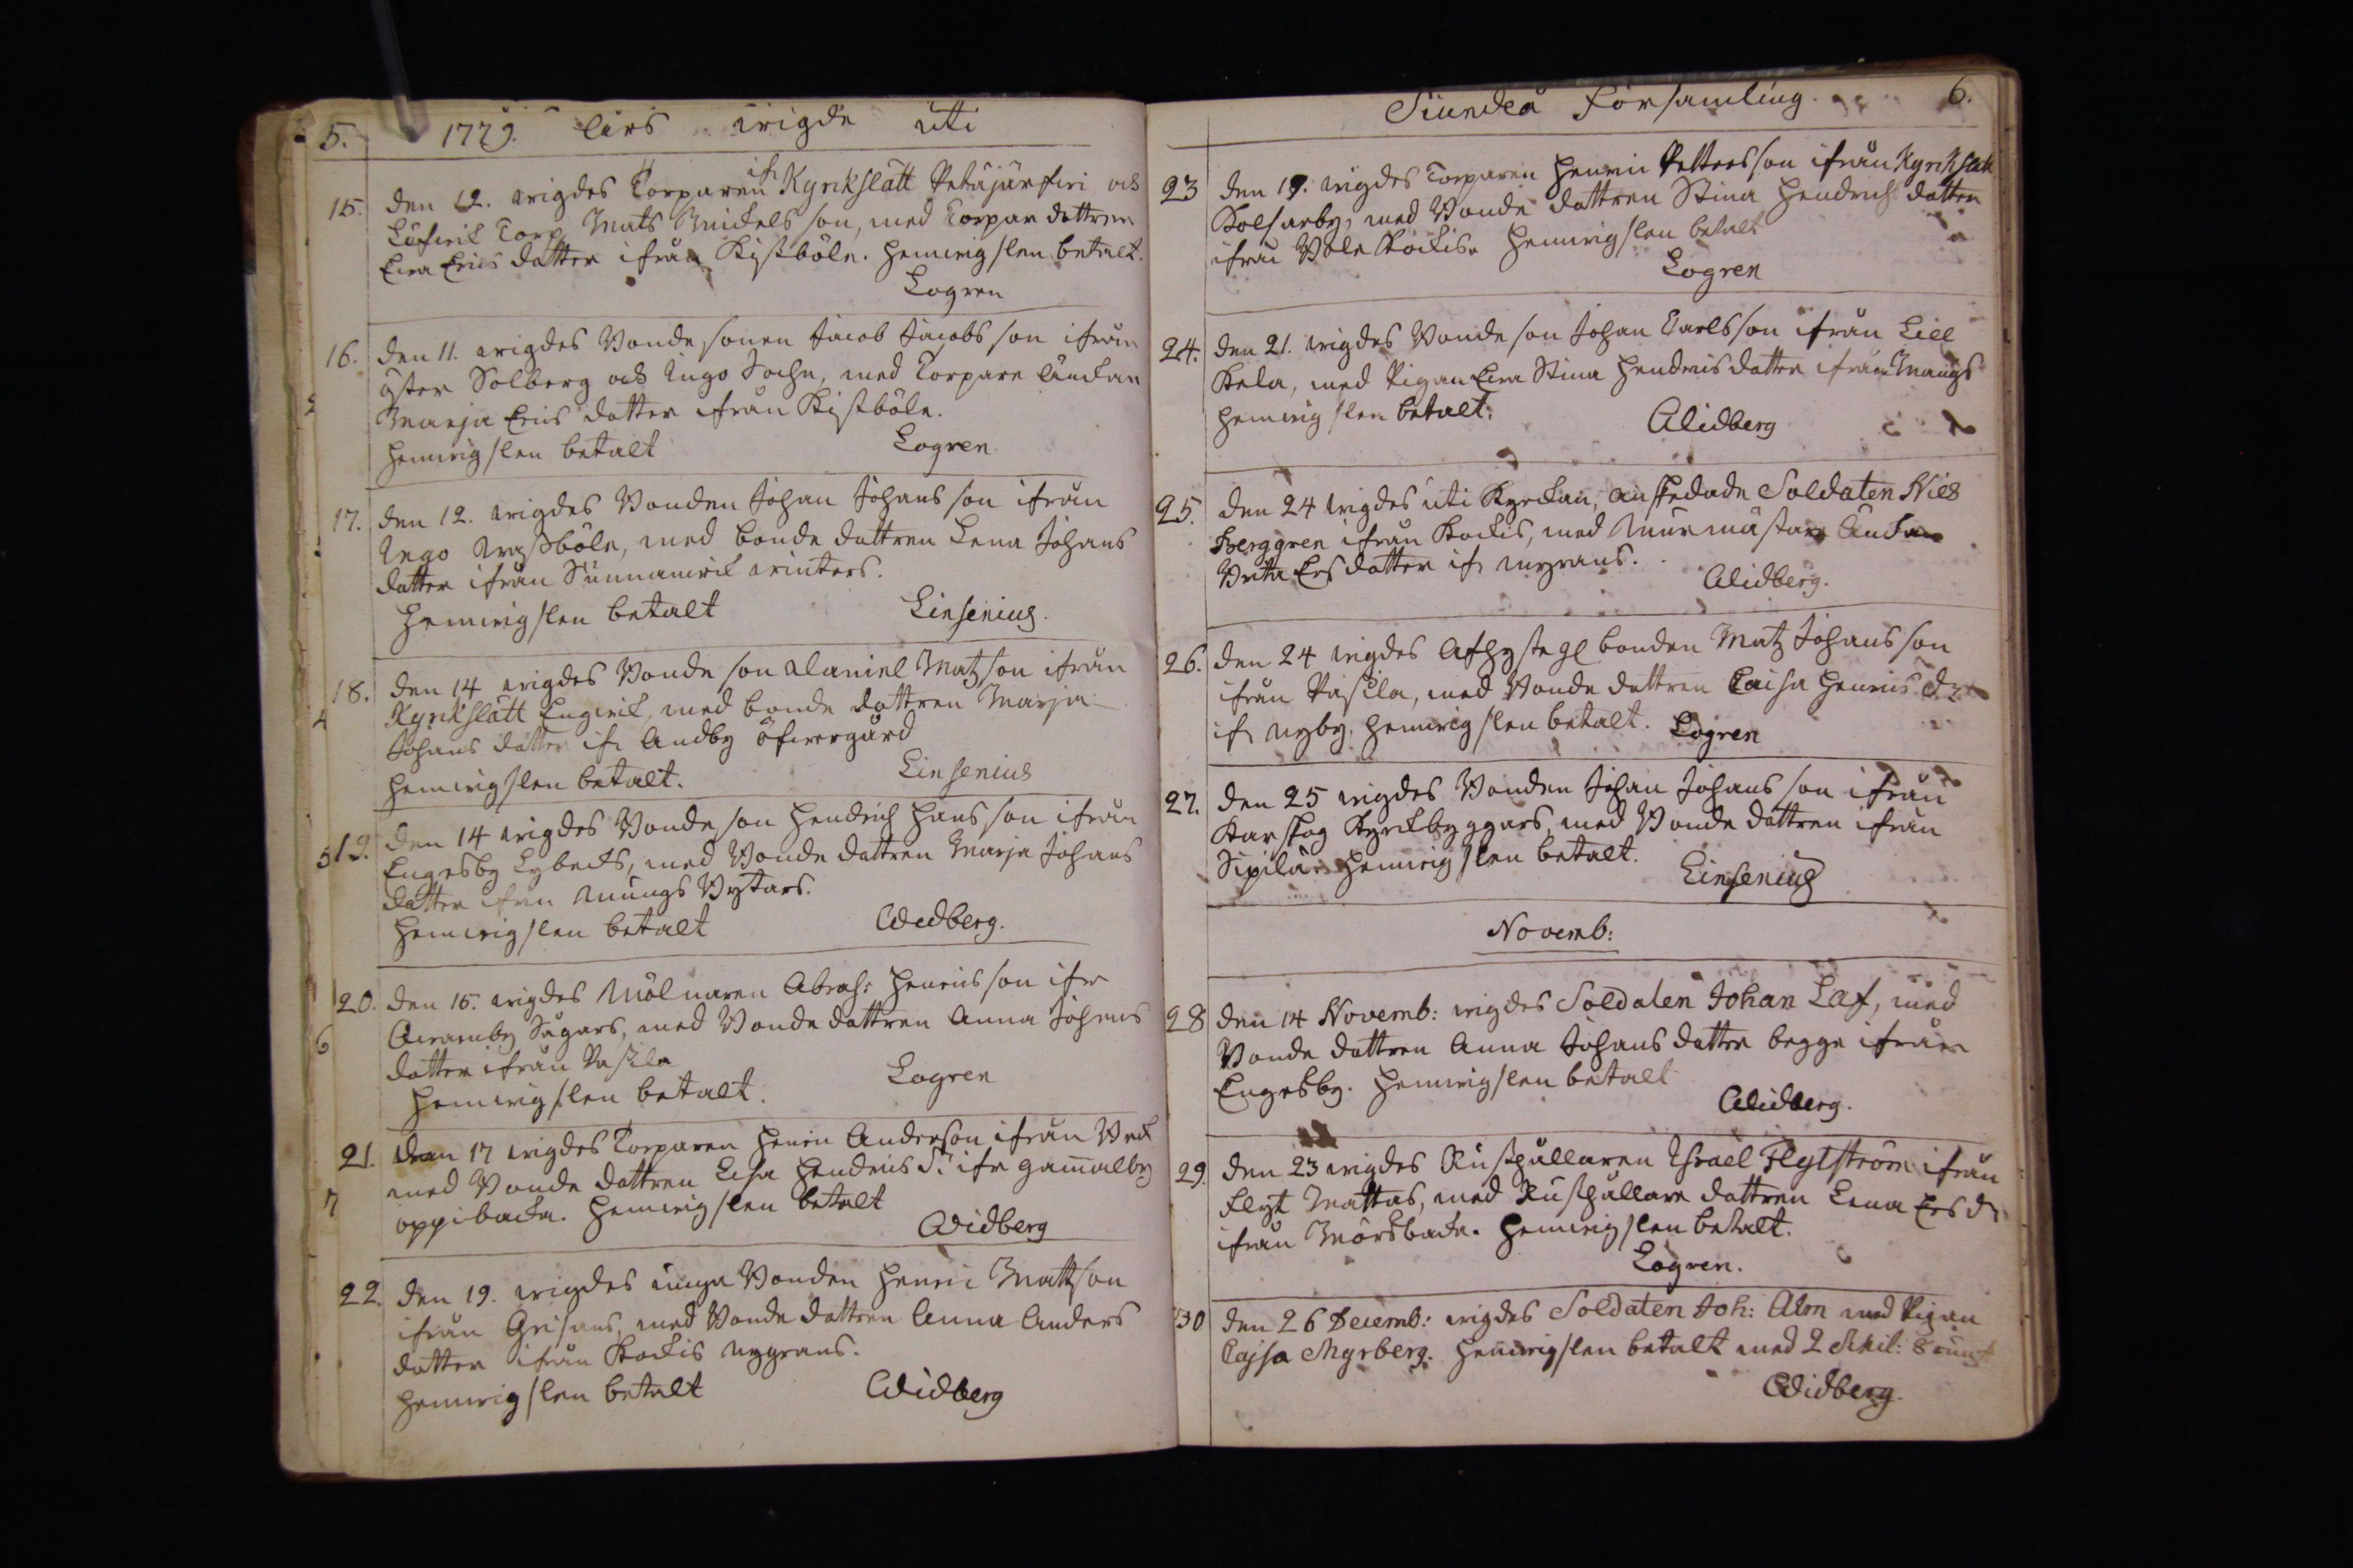 5. 1779. Års wigde uti
15. den 12. wigdes Torparen ifr Kyrkslätt Petäjärfwi och
Löfwik Torp Mats Mickels son, med Torpare dottren
Ewa Erics dotter ifrån Kistböle. Hemwigslen betalt.
Logren
16. den 11. wigdes Bonde sonen Jacob Jacobs son ifrån
öster Solberg och Ingo Sochn, med Torpare Änckan
Marja Erics dotter ifrån Kistböle.
Hemwigslen betalt Logren
17. den 12. wigdes Bonden Johan Johans son ifrån
Ingo böle, med bonde dottren Lena Johans
dotter ifrån Sunnanwik
Hemwigslen betalt Linsenius.
18. den 14 wigdes Bonde son Daniel Matzson ifrån
Kyrkslätt Engwik, med bonde dottren Marja
Johans dotter ifr Andby öfwergård
Hemwigslen betalt. Linsenius
19. den 14 wigdes Bonde son Hendrich Hans son ifrån
Engesby Lybecks, med Bonde dottren Marja Johans
dotter ifrån Mungs Bystars.
Hemwigslen betalt Widberg.
20. den 15. wigdes Mölnaren Abrah: Henrics son ifr
Qwarnby Sågars, med Bonde dottren Anna Johans
dotter ifrån Pasila
Hemwigslen betalt. Logren
21. den 17 wigdes Torparen Henric Anderson ifrån Wik
med Bonde dottren Lisa Hendrics dr ifr Gammalby
oppibacka. Hemwigslen betalt
Widberg
22. den 19. wigdes unga Bonden Henric Mattson
ifrån Grisans, med Bonde dottren Anna Anders
dotter ifrån Kockis nygrans.
Hemwigslen betalt Widberg
Siundeå Församling. 6.
23 den 19. wigdes Torparen Henric Petters son ifrån Kyrkslätt
Kolsarby, med Bonde dottren Stina Hendrichs dotter
ifrån Böle Kockis. Hemwigslen betalt
Logren
24. den 21. wigdes Bonde son Johan Carlsson ifrån Lill
Kela, med Pigan Ewa Stina Hendrics dotter ifrån Mangs
Hemwigslen betalt. Widberg
25. den 24 wigdes uti Kyrckan, afskedade Soldaten Nils
Berggren ifrån Kockis, med Murmästare Änckan
Brita Ers dotter ifr nygrans.
Widberg.
26. den 24 wigdes Afhyste gl bonden Matz Johans son
ifrån Pasila, med Bonde dottren Caisa Henrics dr
ifr Nyby. Hemwigslen betalt. Logren
27. den 25 wigdes Bonden Johan Johans son ifrån
Karskog Kyrckbyggars, med Bonde dottren ifrån
Sipilä. Hemwigslen betalt.
Linsenius
Novemb:
28 den 14 Novemb: wigdes Soldaten Johan Laf, med
Bonde dottren Anna Johans dotter begge ifrån
Engesby. Hemwigslen betalt
Widberg.
29. den 23 wigdes Rusthållaren Israel Flytström ifrån
Flyt Mattas, med Rusthållare dottren Lena Ers dr
ifrån Mörsbacka. Hemwigslen betalt.
Logren.
30 den 26 Decemb: wigdes Soldaten Joh: Alm med Pigan
Cajsa Myrberg. Hemwigslen betalt med 2 Skil: 8 runst
Widberg.